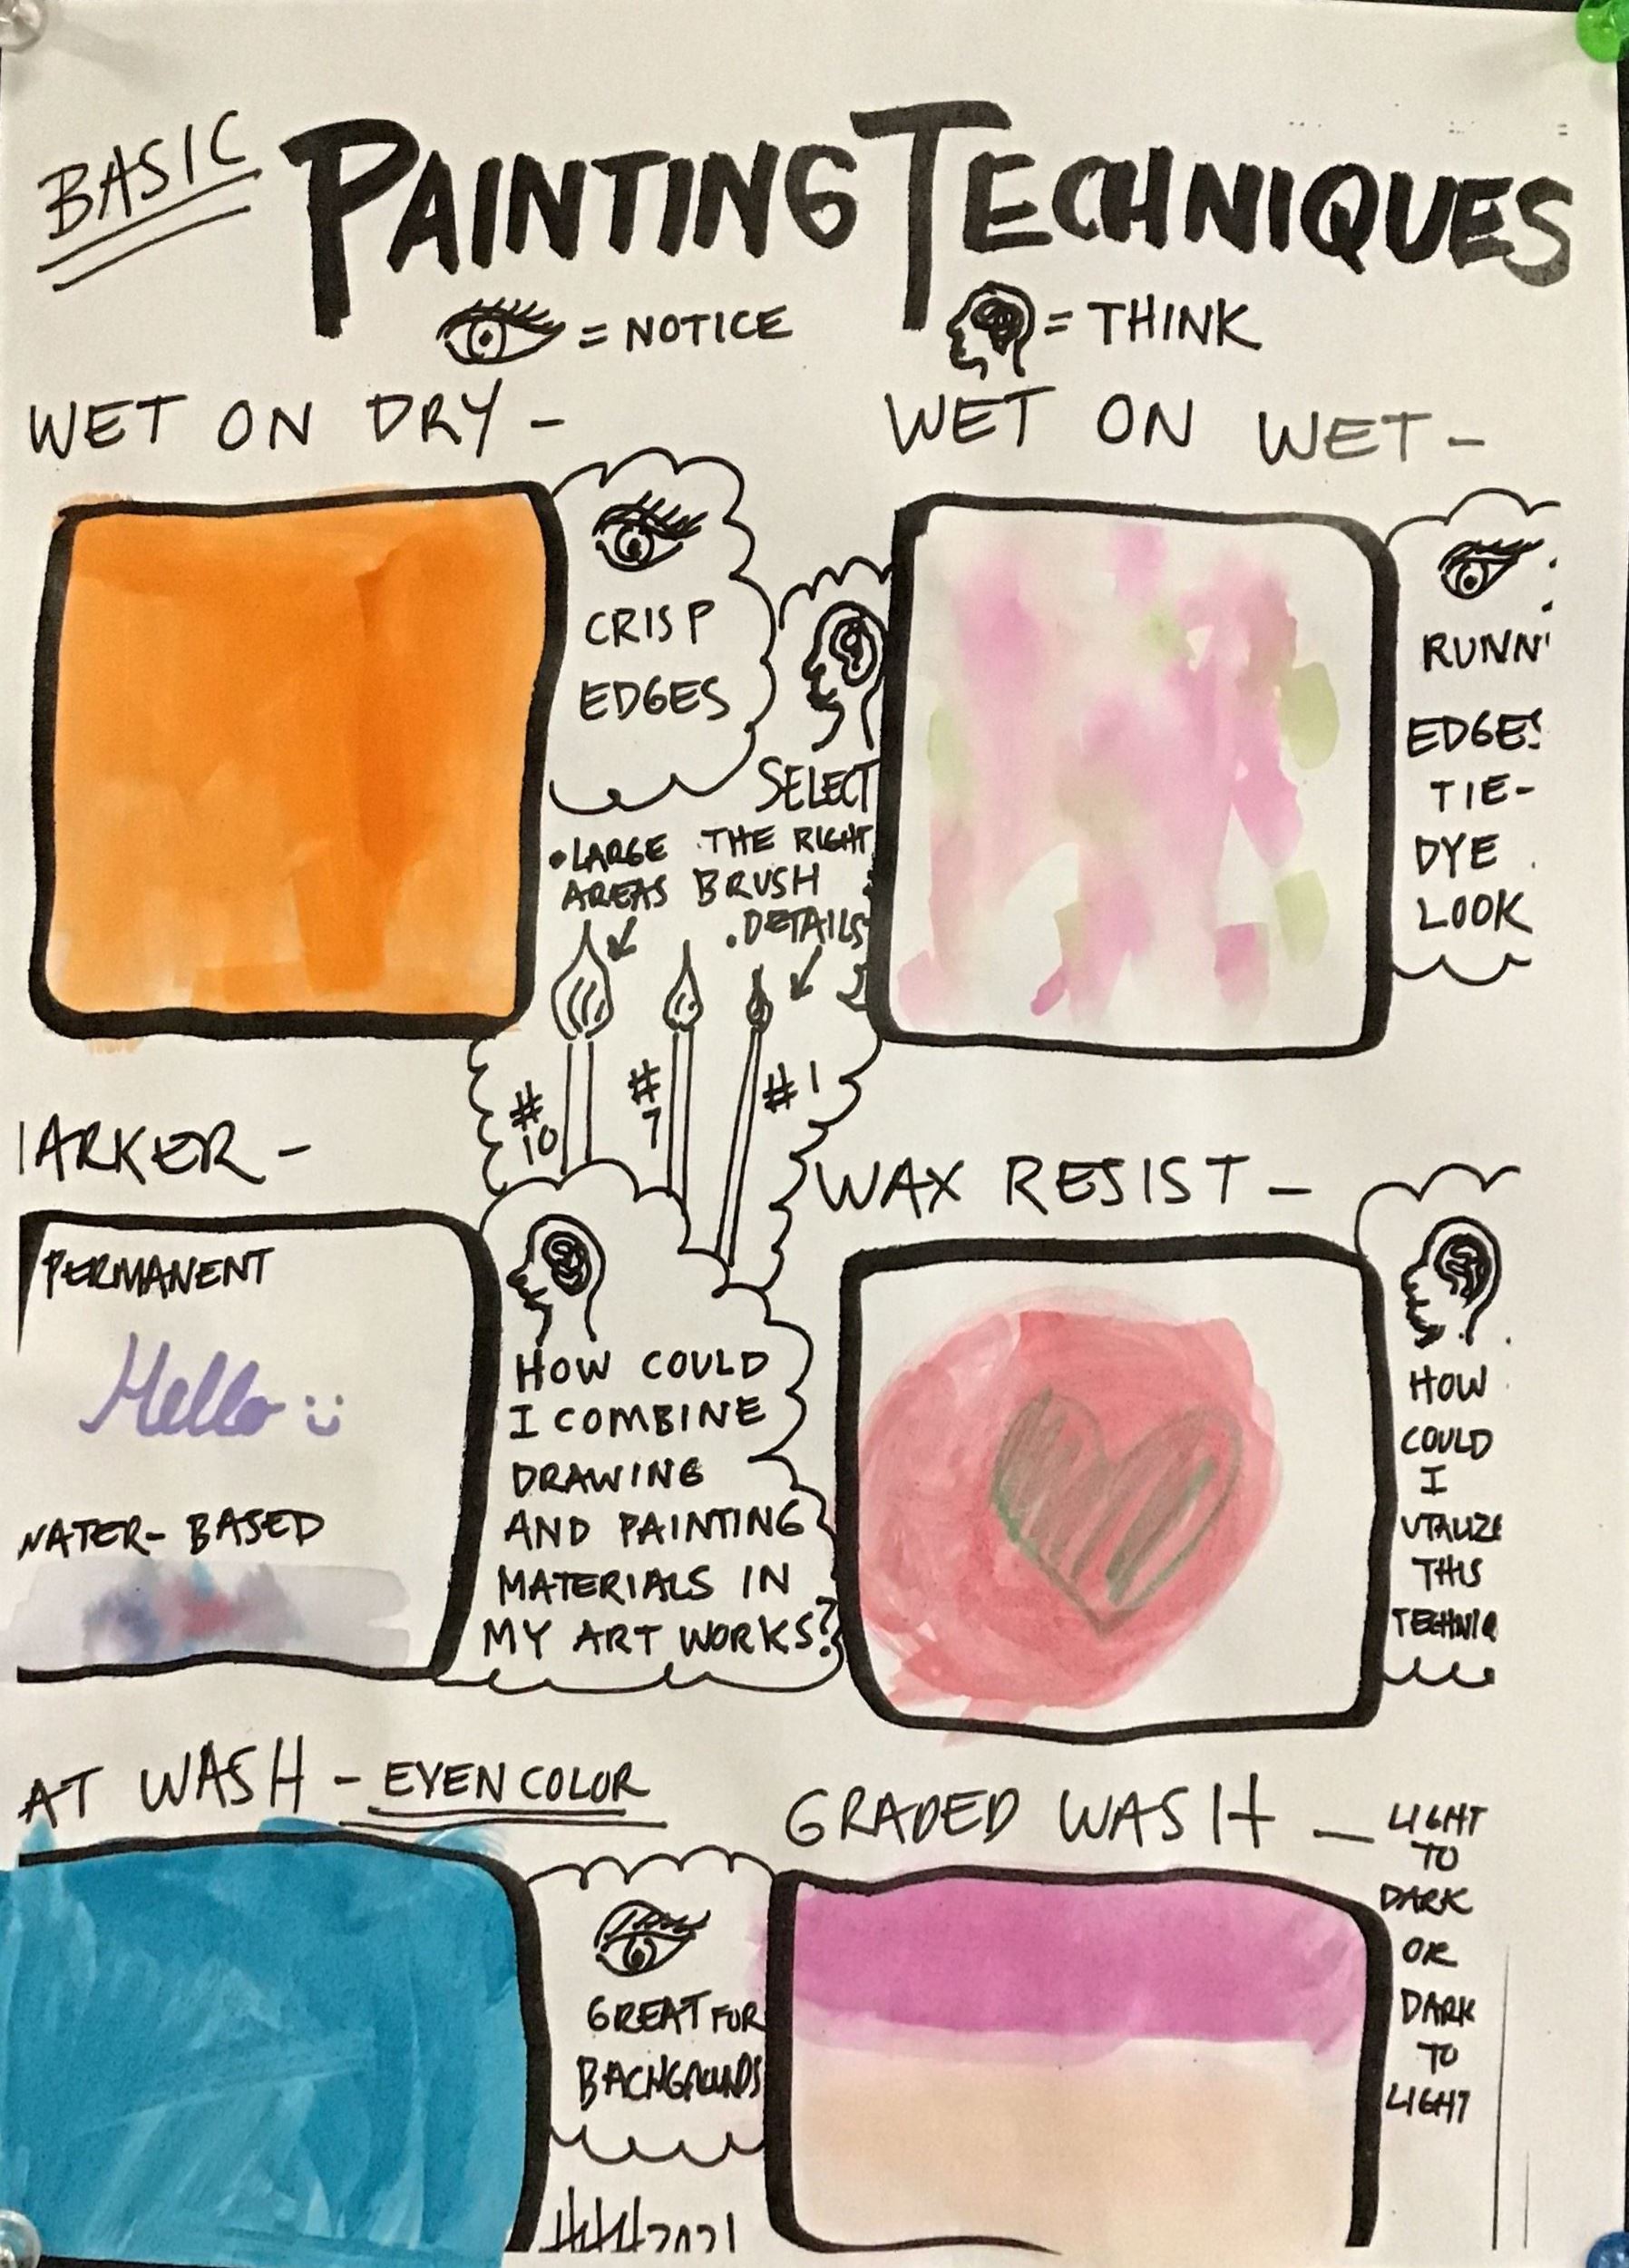 BASIC PAINTING TECHNIQUES
= NOTICE
= THINK
WET ON DRY -
CRISP
EDGES
WET ON WET -
RUNN
EDGES
TIE-
DYE
LOOK
SELECT
THE RIGHT
BRUSH
• LARGE
AREAS
. DETAILS
#10
#7
#1
ARKER -
PERMANENT
Hello
WATER-BASED
HOW COULD
I COMBINE
DRAWING
AND PAINTING
MATERIALS IN
MY ART WORKS?
WAX RESIST -
HOW
COULD
I
UTALIZE
THIS
TECHNIQ
AT WASH - EVEN COLOR
GREAT FOR
BACKGROUNDS
GRADED WASH -
LIGHT
TO
DARK
OR
DARK
TO
LIGHT
2021